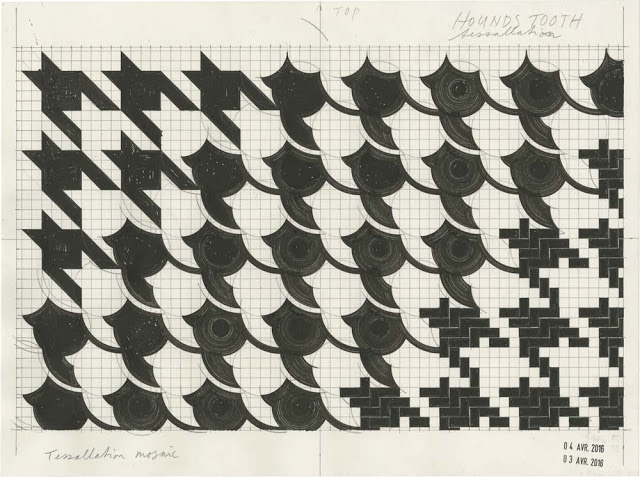 TOP
HOUNDS TOOTH
tessallation
Tessallation mosaïc
04 AVR. 2016
03 AVR. 2016